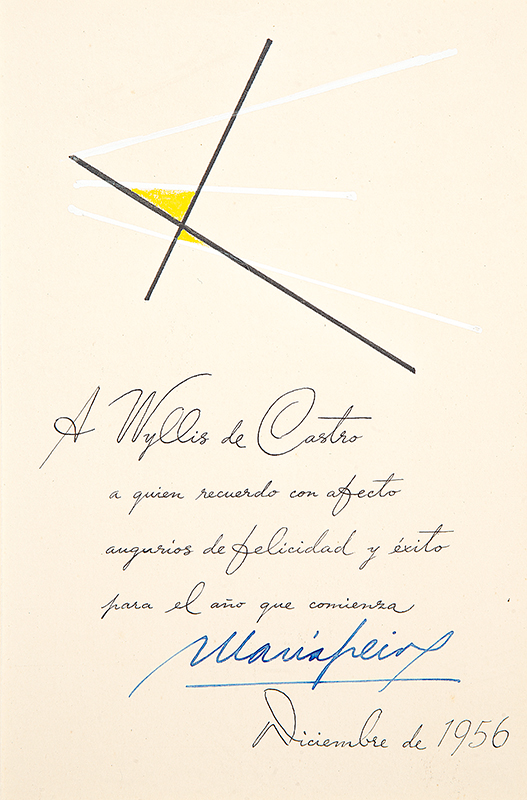 A Wyllis de Castro
a quien recuerdo con afecto
augurios de felicidad y éxito
para el año que comienza
Diciembre de 1956